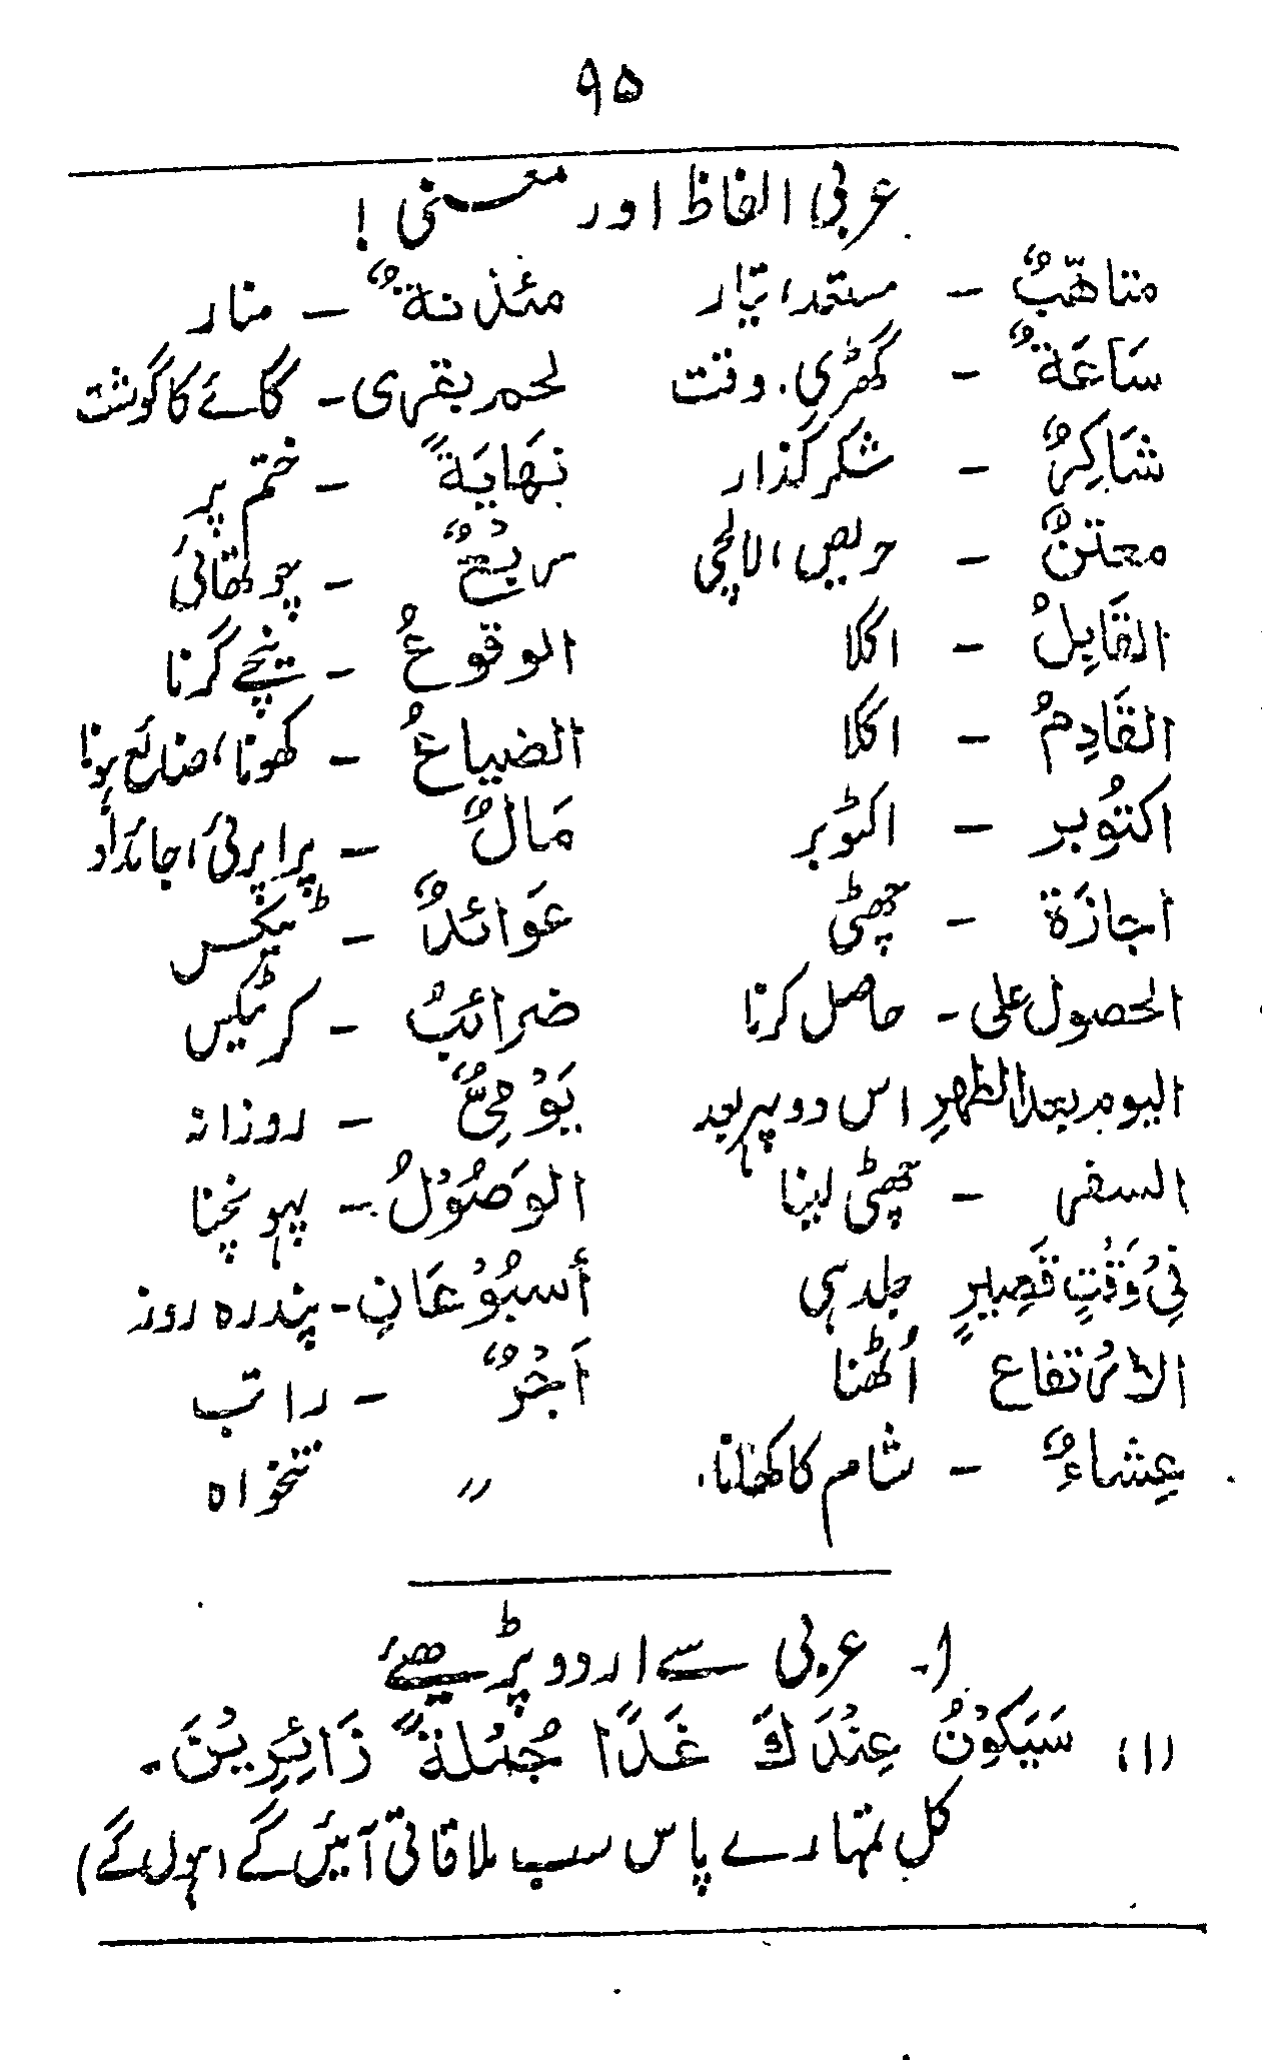 ۹۵
عربی الفاظ اور معنی !
متاهّبٌ - مستعد، تیّار مئذنةٌ - منار
سَاعَةٌ - گھڑی، وقت لحم بقری - گائے کا گوشت
شَاكِرٌ - شکر گذار نِهَايَةً - ختم پر
معتنٌ - حریص، لالچی ربُعٌ - چوتھائی
القَابِلُ - اگلا الوقوعُ - نیچے گرنا
القَادِمُ - اگلا الضياعُ - کھونا، ضائع ہونا
اكتُوبر - اکٹوبر مَالٌ - پراپرٹی، جائداد
اجازَة - چھٹی عَوَائدٌ - ٹیکس
الحصول على - حاصل کرنا ضرائبُ - کر ٹیکس
اليوم بعد الظهرِ اس دوپہر بعد يَوْمِىٌّ - روزانہ
السفر - چھٹی لینا الوَصُوْلُ - پہونچنا
فِىْ وَقْتٍ قَصِيرٍ جلد ہی أسبُوْعَانِ - پندرہ روز
الارْتفاع اُٹھنا اَجْرٌ - راتب
عِشاءٌ - شام کا کھانا. " تنخواہ
۱۔ عربی سے اردو پڑھئے
(۱) سَيَكُوْنُ عِنْدَكَ غَدًا جُمْلةً زَائِرِيْنَ۔
کل تمہارے پاس سب ملاقاتی آئیں گے (ہوں گے)